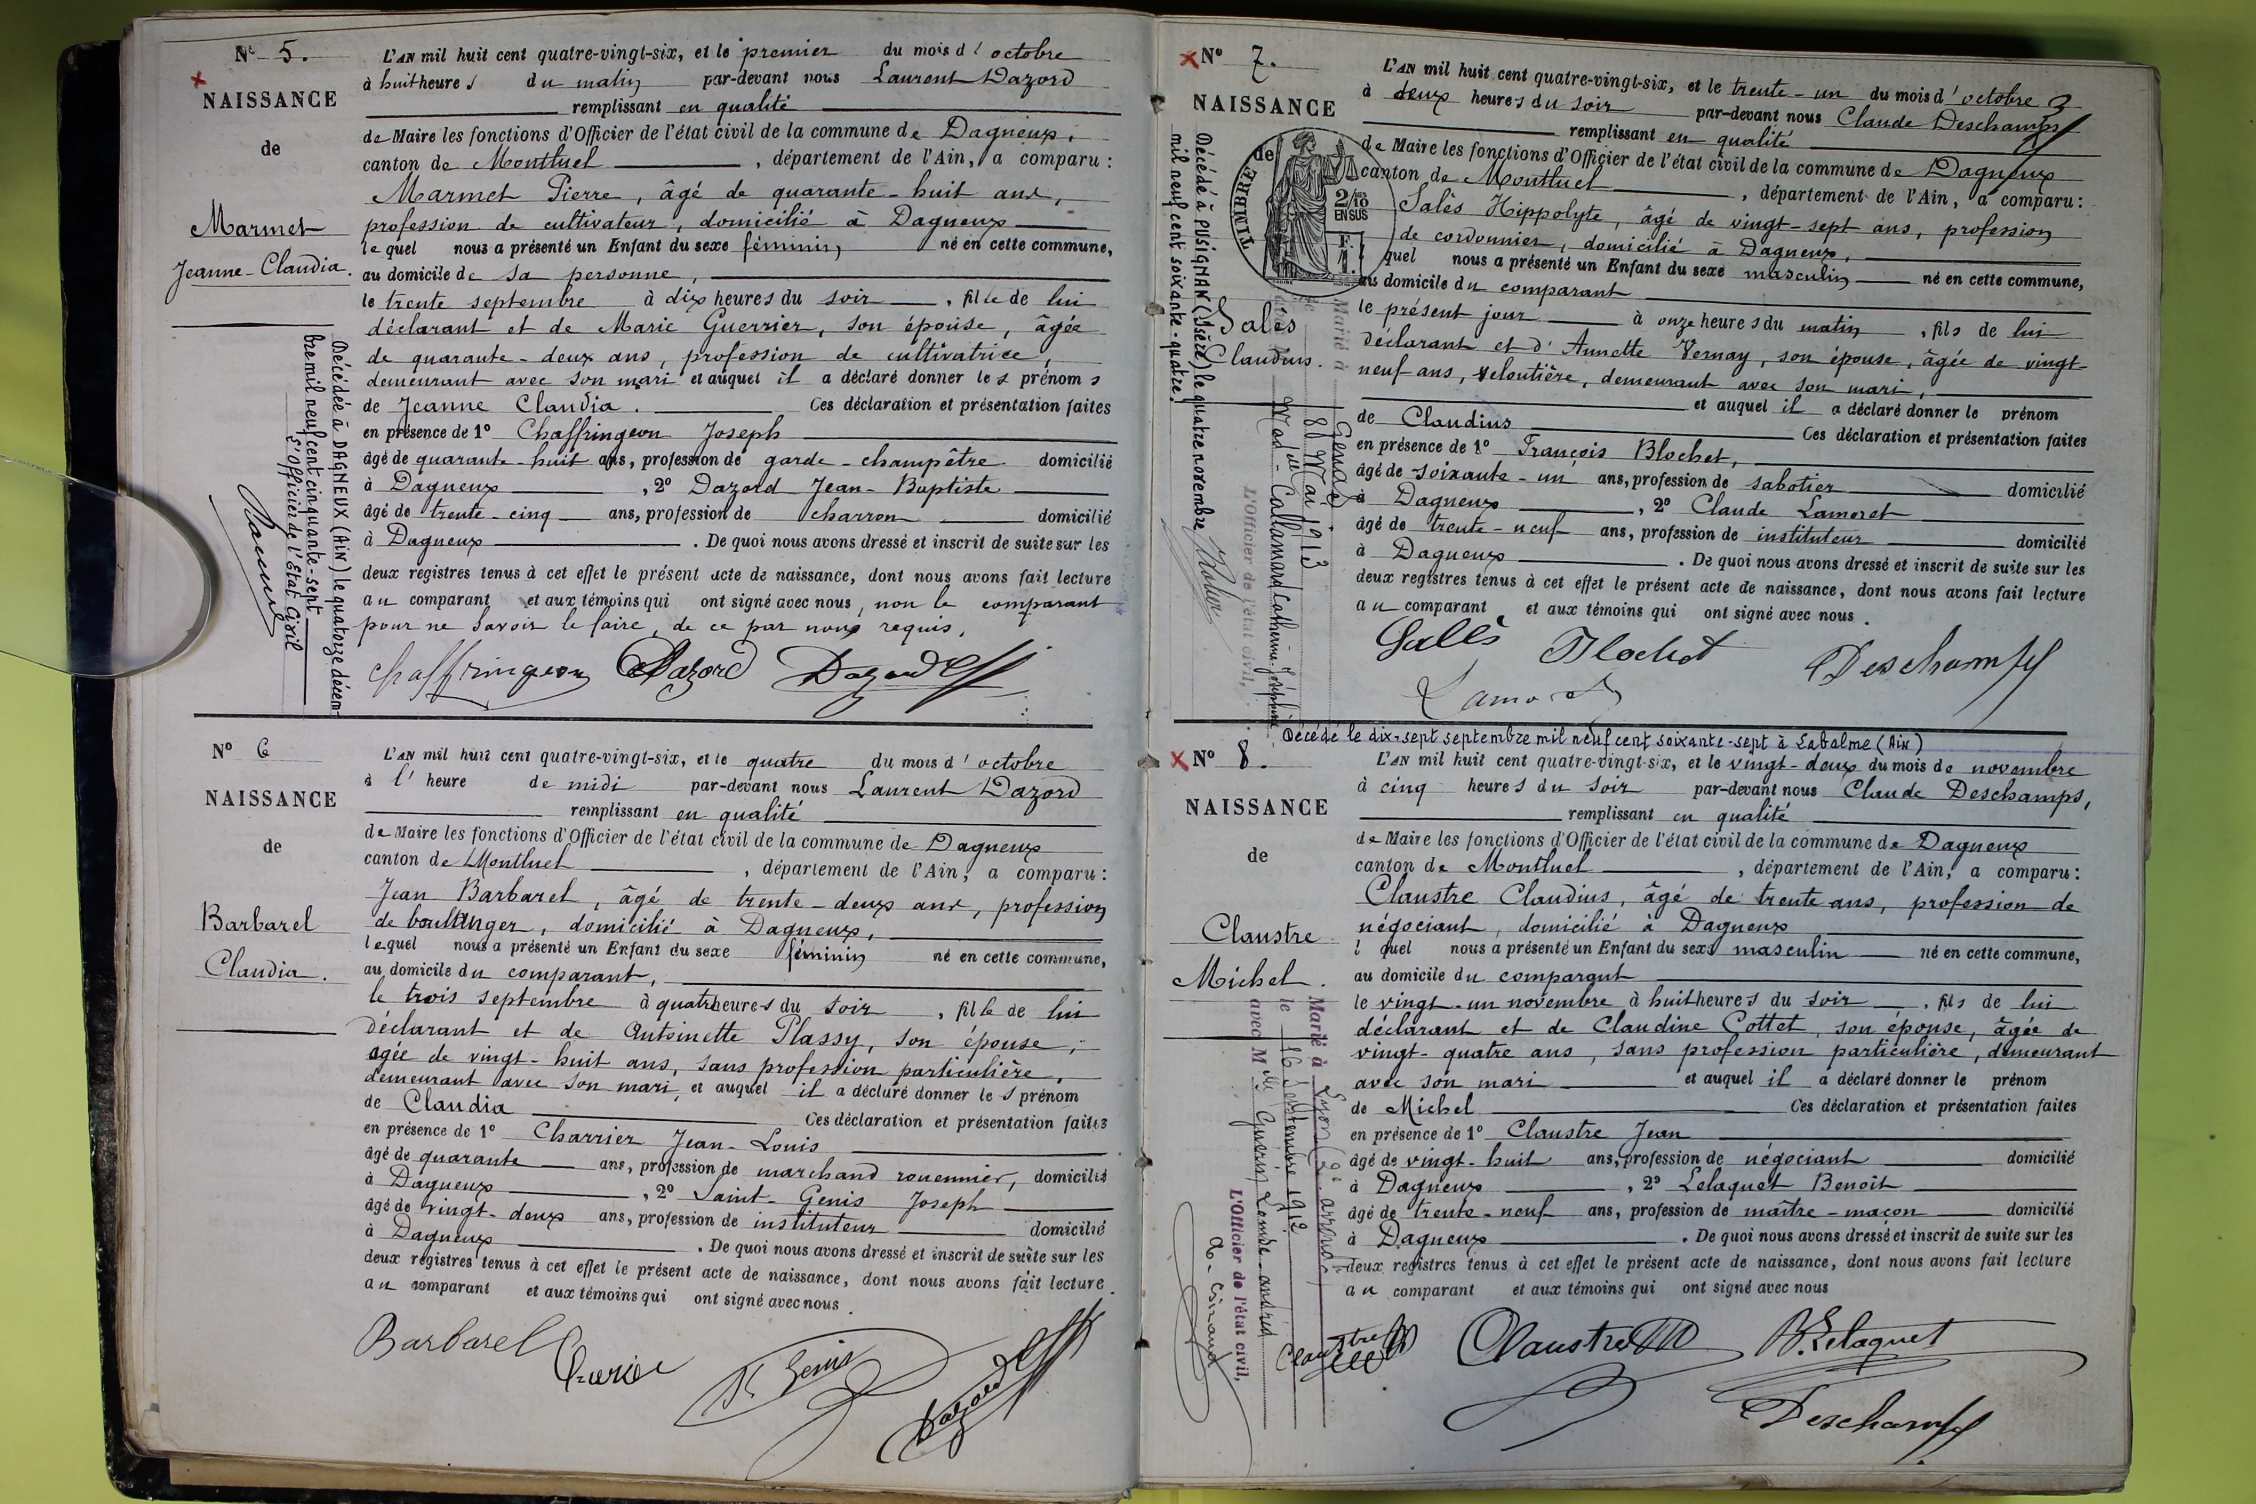 Nº 5.
NAISSANCE
de
Marmet
Jeanne-Claudia.
Décédée à DAGNEUX (Ain) le quatorze décem-
bre mil neuf cent cinquante-sept
L'Officier de l'Etat Civil
L'AN mil huit cent quatre-vingt-six, et le premier du mois d'octobre
à huit heures du matin par-devant nous Laurent Dazord
remplissant en qualité
de Maire les fonctions d'Officier de l'état civil de la commune de Dagneux,
canton de Montluel, département de l'Ain, a comparu:
Marmet Pierre, âgé de quarante-huit ans,
profession de cultivateur, domicilié à Dagneux
lequel nous a présenté un Enfant du sexe féminin né en cette commune,
au domicile de sa personne,
le trente septembre à dix heures du soir, fille de lui
déclarant et de Marie Guerrier, son épouse, âgée
de quarante-deux ans, profession de cultivatrice,
demeurant avec son mari et auquel il a déclaré donner les prénoms
de Jeanne Claudia. Ces déclaration et présentation faites
en présence de 1º Chaffringeon Joseph
âgé de quarante-huit ans, profession de garde-champêtre domicilié
à Dagneux, 2º Dazord Jean-Baptiste
âgé de trente-cinq ans, profession de charron domicilié
à Dagneux. De quoi nous avons dressé et inscrit de suite sur les
deux registres tenus à cet effet le présent acte de naissance, dont nous avons fait lecture
au comparant et aux témoins qui ont signé avec nous, non le comparant
pour ne savoir le faire, de ce par nous requis.
Chaffringeon Dazord Dazord
Nº 6
NAISSANCE
de
Barbarel
Claudia.
L'AN mil huit cent quatre-vingt-six, et le quatre du mois d'octobre
à l'heure de midi par-devant nous Laurent Dazord
remplissant en qualité
de Maire les fonctions d'Officier de l'état civil de la commune de Dagneux
canton de Montluel, département de l'Ain, a comparu:
Jean Barbarel, âgé de trente-deux ans, profession
de boulanger, domicilié à Dagneux,
lequel nous a présenté un Enfant du sexe féminin né en cette commune,
au domicile du comparant,
le trois septembre à quatre heures du soir, fille de lui
déclarant et de Antoinette Plassy, son épouse,
agée de vingt-huit ans, sans profession particulière,
demeurant avec son mari, et auquel il a déclaré donner les prénom
de Claudia Ces déclaration et présentation faites
en présence de 1º Charrier Jean-Louis
âgé de quarante ans, profession de marchand rouennier, domicilié
à Dagneux, 2º Saint-Genis Joseph
âgé de vingt-deux ans, profession de instituteur domicilié
à Dagneux. De quoi nous avons dressé et inscrit de suite sur les
deux registres tenus à cet effet le présent acte de naissance, dont nous avons fait lecture
au comparant et aux témoins qui ont signé avec nous.
Barbarel
St Genis Dazord
Nº 7.
NAISSANCE
de
TIMBRE
2/10 EN SUS
F. 1.
Salès
Claudius.
Décédé à PUSIGNAN (Isère) le quatre novembre
mil neuf cent soixante-quatre.
Marié à Genas
le 8 Mai 1913
Madelle Callamard Catherine-Joséphine
L'Officier de l'état civil,
L'AN mil huit cent quatre-vingt-six, et le trente-un du mois d'octobre
à deux heures du soir par-devant nous Claude Deschamps
remplissant en qualité
de Maire les fonctions d'Officier de l'état civil de la commune de Dagneux
canton de Montluel, département de l'Ain, a comparu:
Salès Hippolyte, âgé de vingt-sept ans, profession
de cordonnier, domicilié à Dagneux,
quel nous a présenté un Enfant du sexe masculin né en cette commune,
au domicile du comparant
le présent jour à onze heures du matin, fils de lui
déclarant et d'Annette Vernay, son épouse, âgée de vingt-
neuf ans, veloutière, demeurant avec son mari,
et auquel il a déclaré donner le prénom
de Claudius Ces déclaration et présentation faites
en présence de 1º François Blochet,
âgé de soixante-un ans, profession de sabotier domicilié
à Dagneux, 2º Claude Lamoret
âgé de trente-neuf ans, profession de instituteur domicilié
à Dagneux. De quoi nous avons dressé et inscrit de suite sur les
deux registres tenus à cet effet le présent acte de naissance, dont nous avons fait lecture
au comparant et aux témoins qui ont signé avec nous.
Salès Blochet Deschamps
Lamoret
Décédé le dix-sept septembre mil neuf cent soixante-sept à Labalme (Ain)
Nº 8.
NAISSANCE
de
Claustre
Michel.
Marié à Lyon (3e arrond.)
le 16 Septembre 1912
avec Mlle Guerin
L'Officier de l'état civil,
L'AN mil huit cent quatre-vingt-six, et le vingt-deux du mois de novembre
à cinq heures du soir par-devant nous Claude Deschamps,
remplissant en qualité
de Maire les fonctions d'Officier de l'état civil de la commune de Dagneux
canton de Montluel, département de l'Ain, a comparu:
Claustre Claudius, âgé de trente ans, profession de
négociant, domicilié à Dagneux
l quel nous a présenté un Enfant du sexe masculin né en cette commune,
au domicile du comparant
le vingt-un novembre à huit heures du soir, fils de lui
déclarant et de Claudine Cottet, son épouse, âgée de
vingt-quatre ans, sans profession particulière, demeurant
avec son mari et auquel il a déclaré donner le prénom
de Michel Ces déclaration et présentation faites
en présence de 1º Claustre Jean
âgé de vingt-huit ans, profession de négociant domicilié
à Dagneux, 2º Lelaquet Benoît
âgé de trente-neuf ans, profession de maître-maçon domicilié
à Dagneux. De quoi nous avons dressé et inscrit de suite sur les
deux registres tenus à cet effet le présent acte de naissance, dont nous avons fait lecture
au comparant et aux témoins qui ont signé avec nous
Claustre Claustre B. Lelaquet
Deschamps